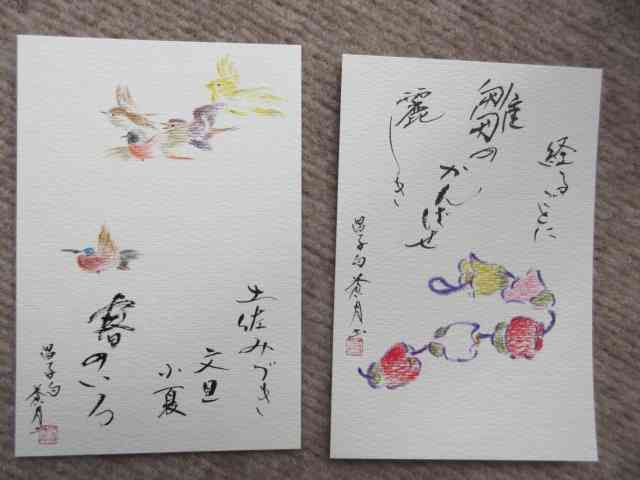 土佐みづき
文旦
小夏
春のいろ
昌子句 蒼月
経るごとに
雛の
かんばせ
麗しき
昌子句 蒼月